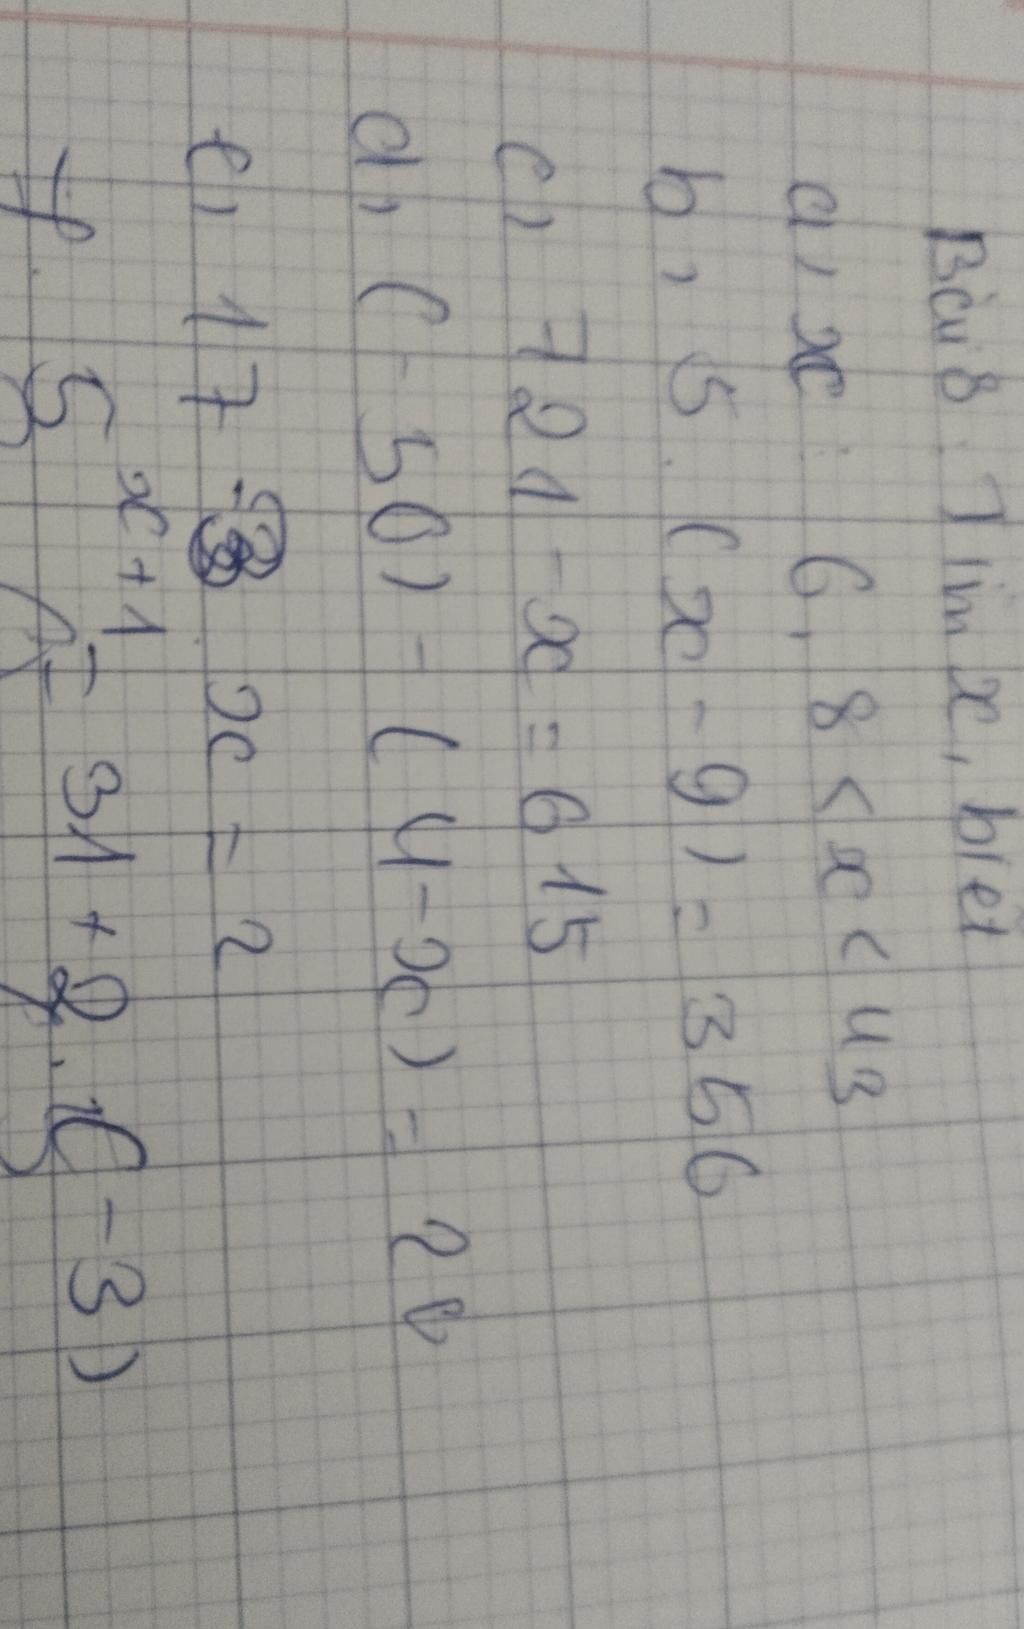 Bài 8. Tìm x, biết
a, x : 6, 8 < x < 43
b, 5. (x - 9) = 356
c, 721 - x = 615
d, (-30) - (4-x) =
e, 17 - . x = 2
f. 5^{x+1} = 31 + 2. (-3)